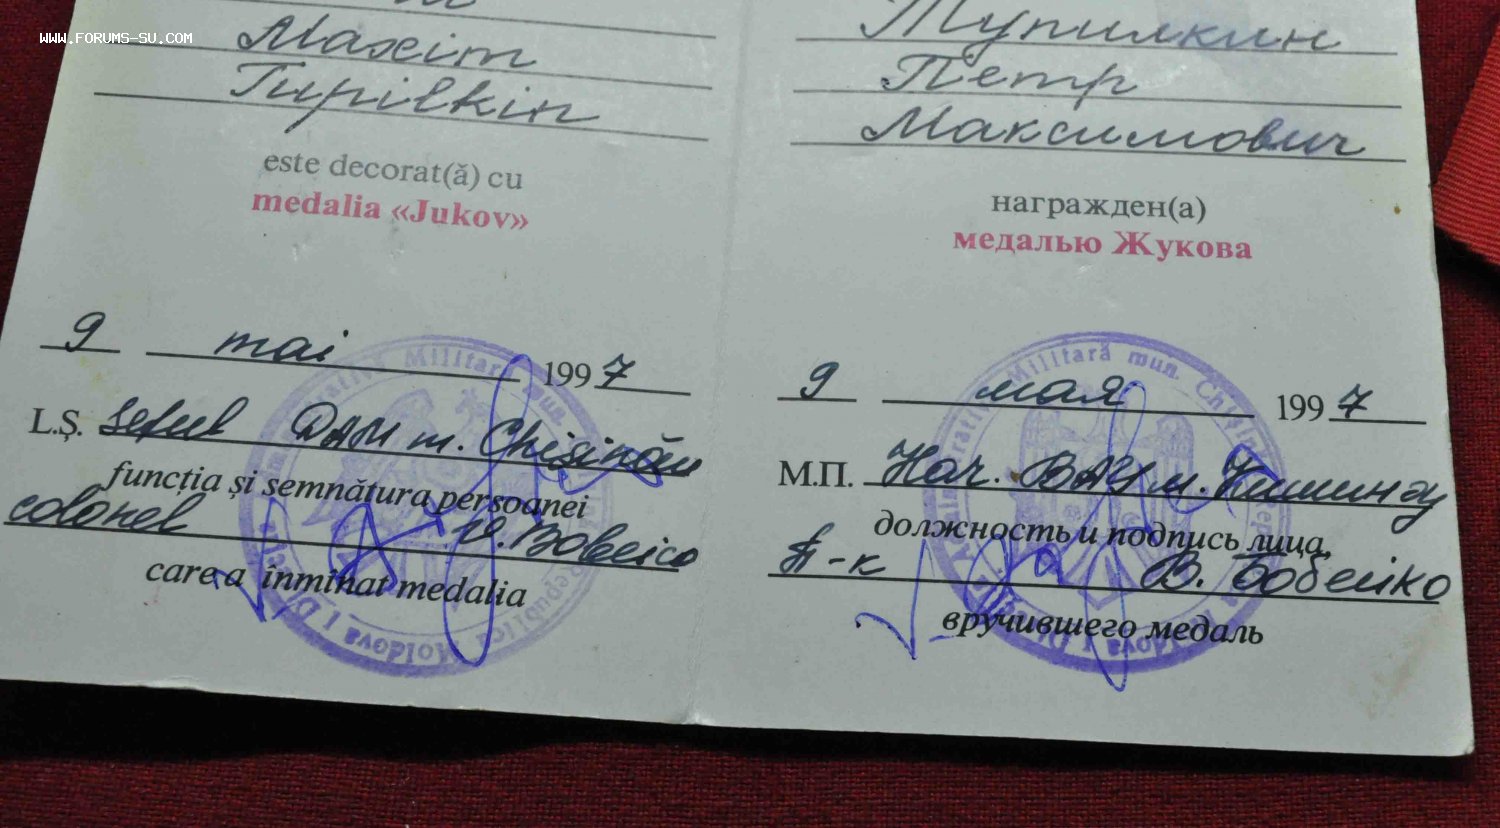 WWW.FORUMS-SU.COM
Maxim
Tupilkin
este decorat(ă) cu
medalia «Jukov»
9 mai 1997
L.Ș. Șeful DAM m. Chișinău
funcția și semnătura persoanei
colonel V. Bobeico
care a înmînat medalia
Тупилкин
Петр
Максимович
награжден(а)
медалью Жукова
9 мая 1997
М.П. Нач. ВАУ м. Кишинэу
должность и подпись лица,
п-к В. Бобейко
вручившего медаль
Militară mun.
Moldova
Militară mun. Chișinău
Moldova